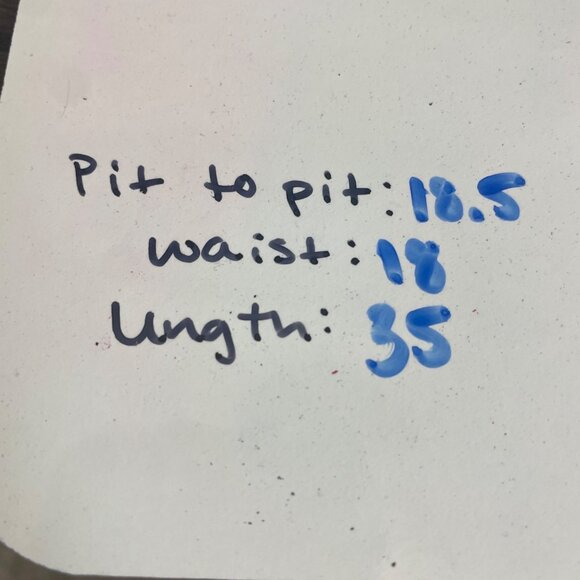 Pit to pit: 18.5
waist: 18
length: 35